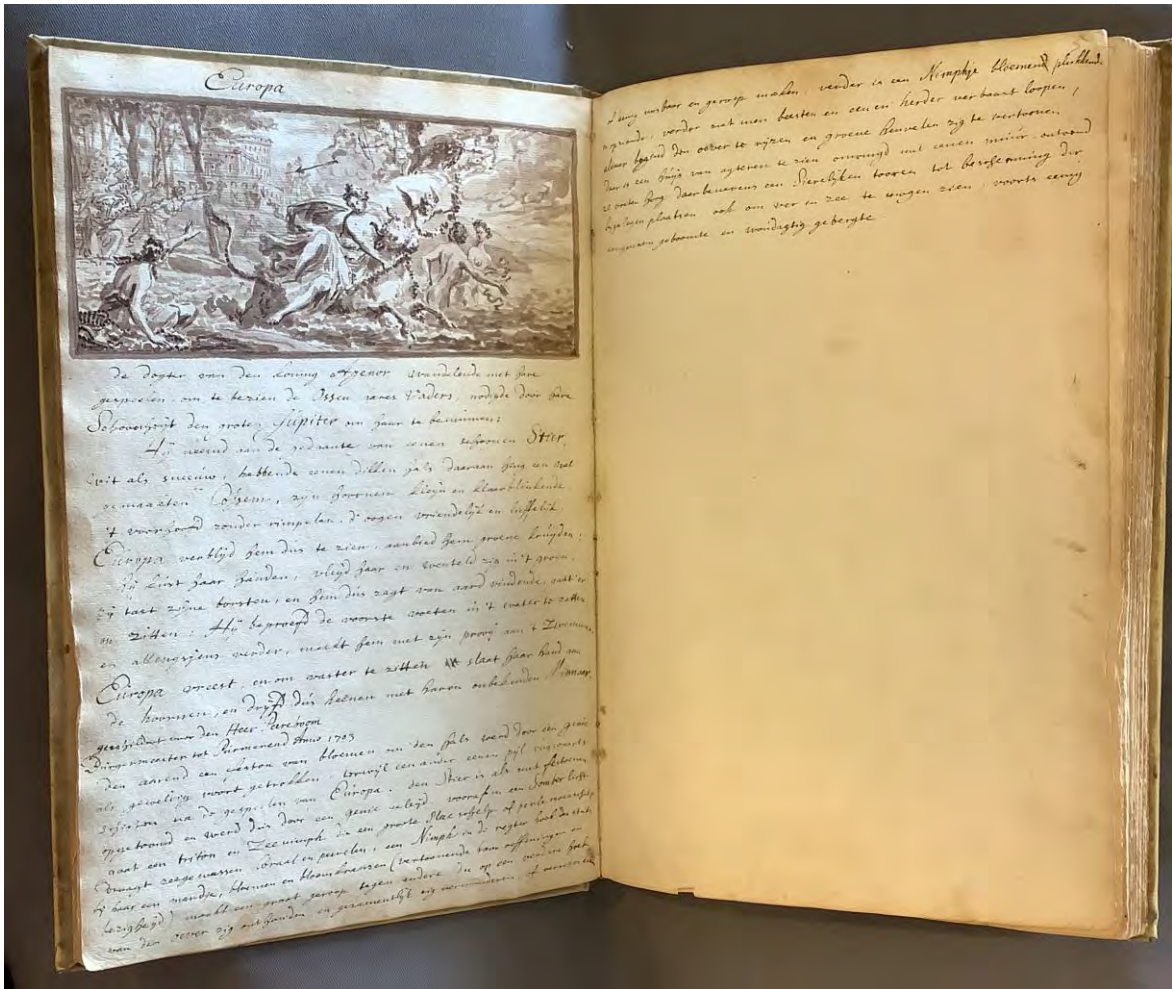 Europa
de dogter van den koning Agenor wandelende met hare
gespeelen, om te bezien de Ossen hares Vaders, nodigde door hare
Schoonheijt den groten Jupiter om haar te beminnen:
Hij neemd aan de gedaante van eenen schoonen Stier,
wit als sneeuw, hebbende eenen dikken hals daaraan hing een wel
gemaakten Cossem, zijn hoornen kleijn en klaarblinkende
't voorhoofd zonder rimpelen, d'oogen vriendelijk en lieffelik.
Europa verblijd hem dus te zien, aanbied hem groene kruijden:
hij kust haar handen, vleijd haar en wenteld zig in't groen,
zij tast zijne borsten, en hem dus zagt van aard vindende, gaat 'er
op zitten: Hij beproefd de voorste voeten in 't water te zetten
en allengsjens verder, maakt hem met zijn prooij aan 't Zwemmen
Europa vreest, en om vaster te zitten slaat haar hand aan
de hoornen, en drijft dus heenen met haren onbekenden Minnaar.
geschildert voor den Heer
Burgermeester tot Purmerend Anno 1703
den aarend een feston van bloemen om den hals werd door een genie
als geweldig voort getrokken, terwijl een ander eenen pijl rugwaarts
schieten na de gespelen van Europa. den Stier is als met festoenen
opgetoomd en werd dus door een genie geleijd. vooraf in een Somber ligt
gaat een triton en Zeenimph die een groote Slac schelp of perle moerschelp
draagt zeegewassen, Coraal en peerlen, een Nimph in de regter hoek
bij haar een mandje, bloemen en bloemkranzen (vertoonende haar oeffeningen en
bezigheijd) maakt een groot geroep tegen andere die op een verdere hoek
van den oever zig onthouden en gezamentlijk zig verwonderen of verwoeden
misbaar en geroep maken, verder is een Nimphje bloemen plukkende
verder siet men beesten en eenen herder verbaast loopen,
alwaar den oever te rijzen en groene heuvelen zig te vertoonen.
daar is een huijs van agteren te zien omringd met eenen muur
daarbenevens een Sierelijken tooren tot bescherming der
bijgelegen plaetsen ook om ver in zee te mogen zien, voorts eenig
geboomte en gebergte